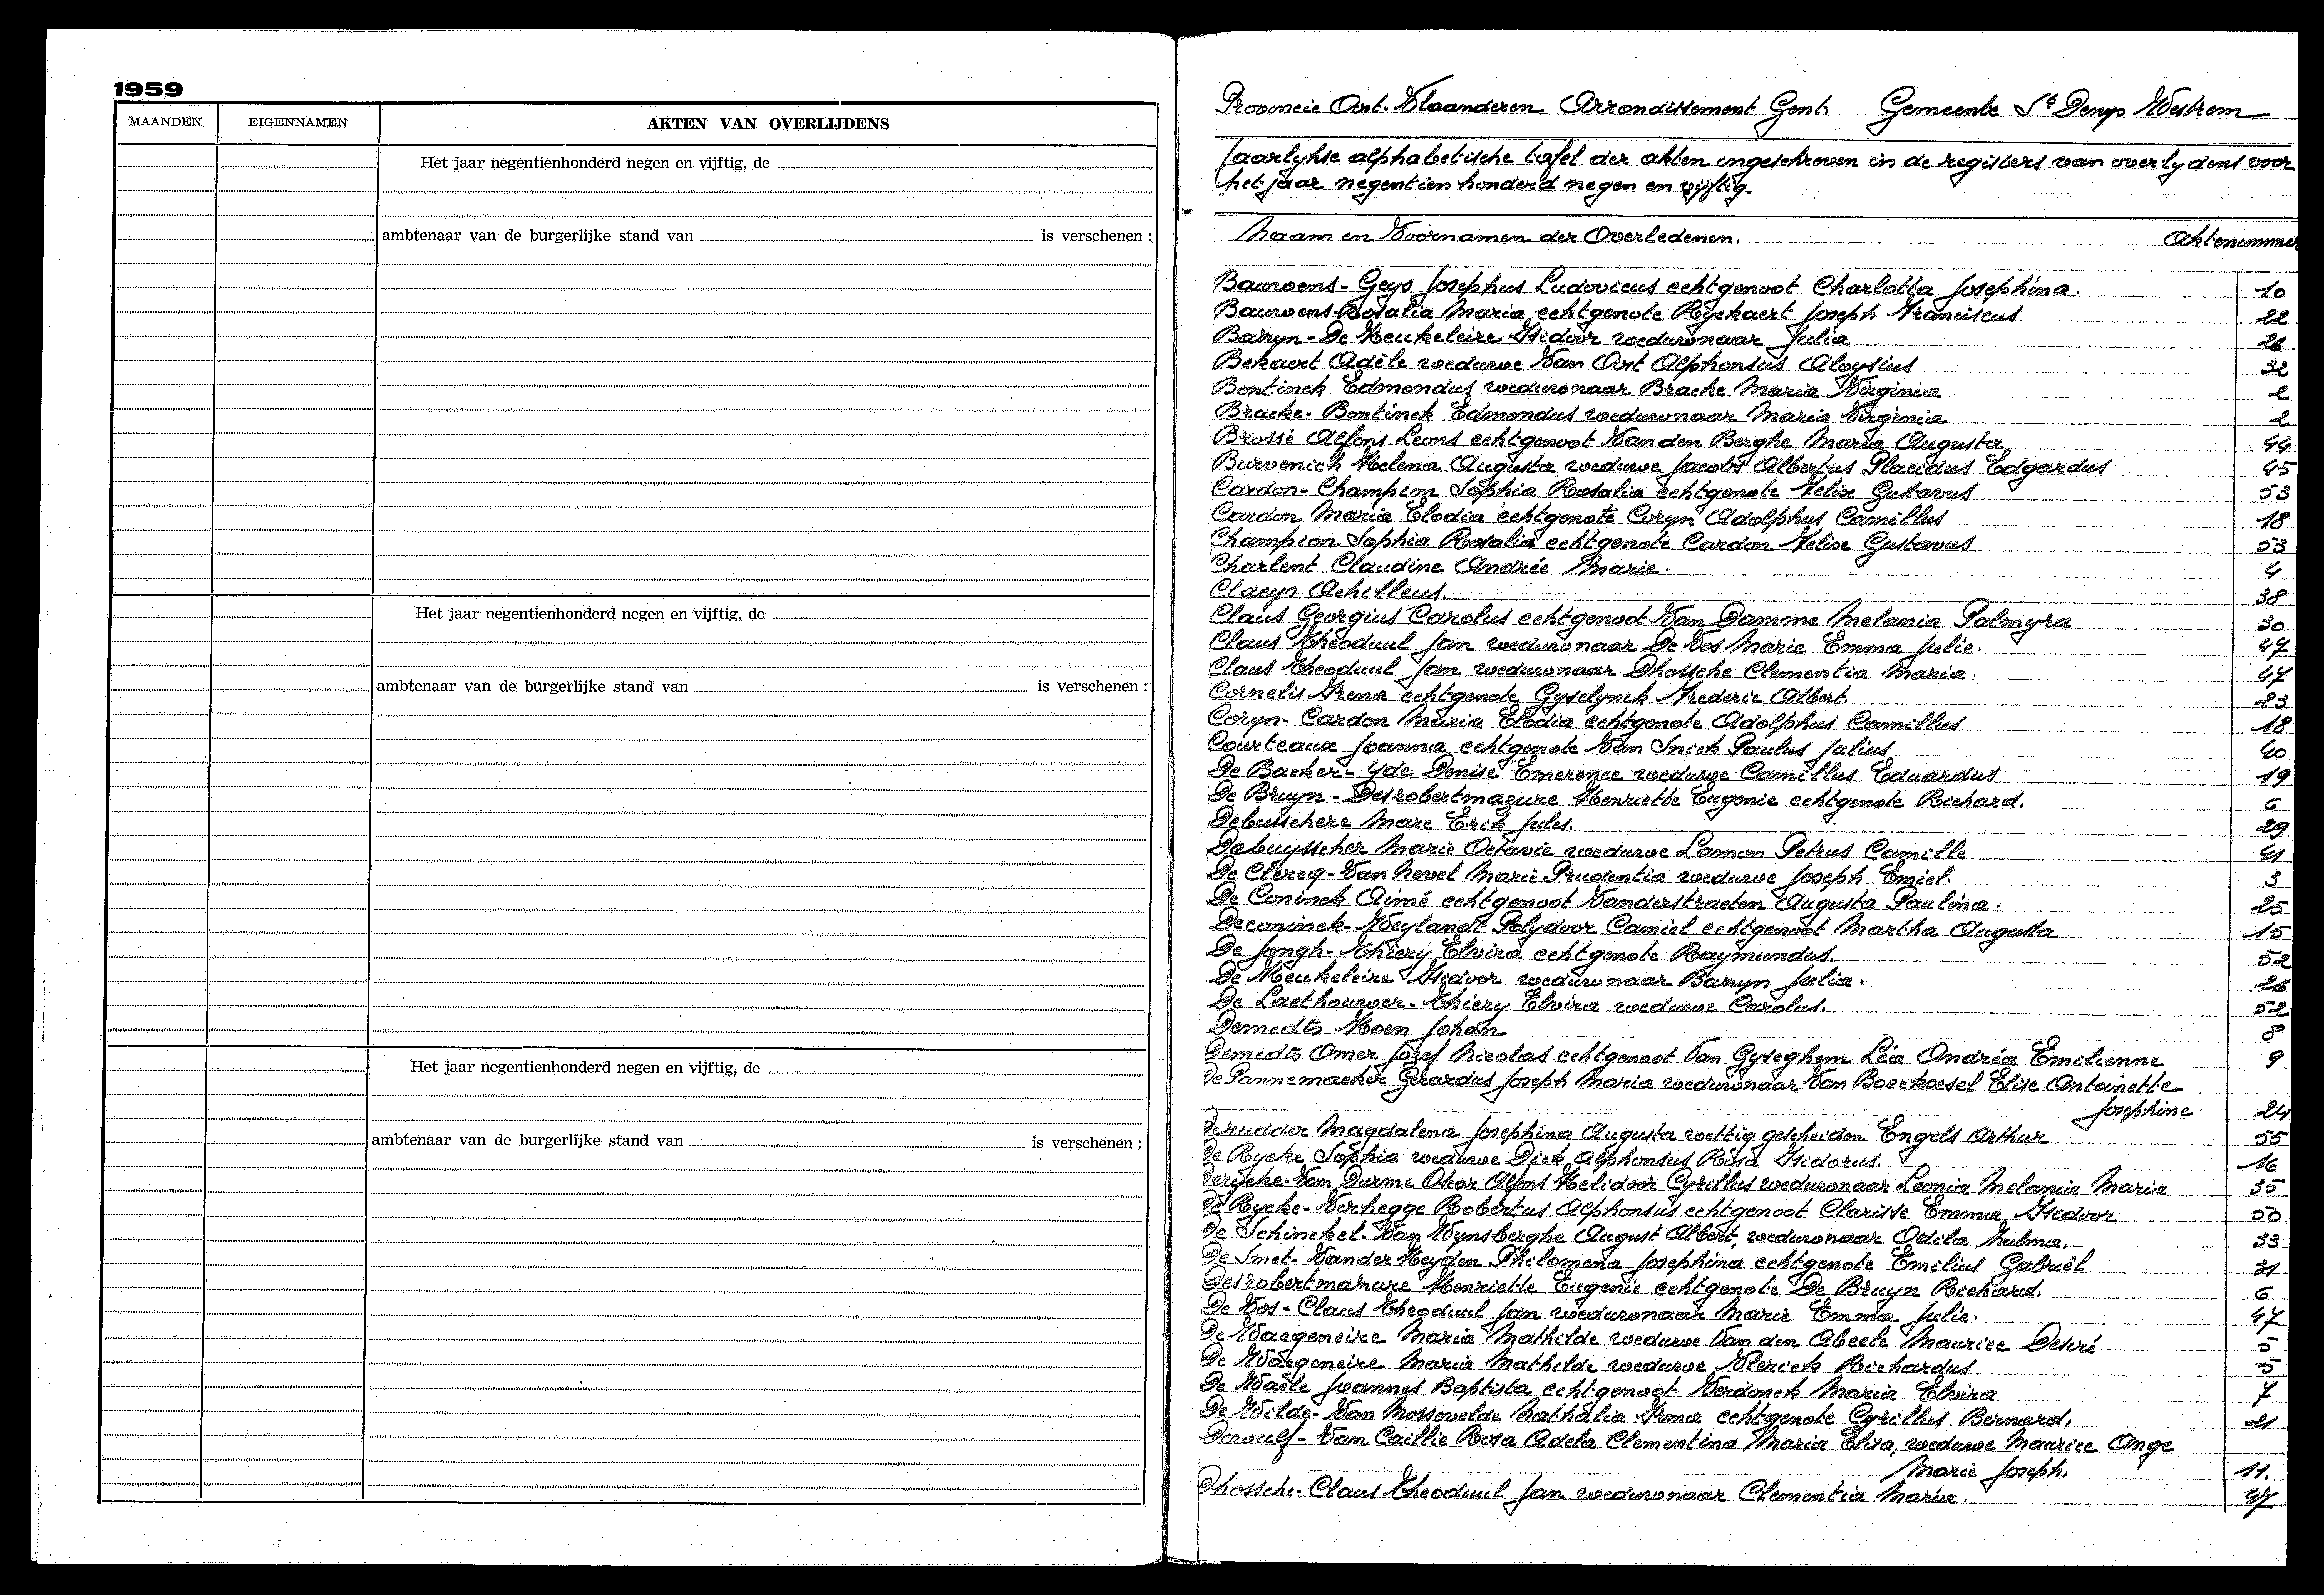 1959
MAANDEN EIGENNAMEN AKTEN VAN OVERLIJDENS
Het jaar negentienhonderd negen en vijftig, de
ambtenaar van de burgerlijke stand van is verschenen :
Het jaar negentienhonderd negen en vijftig, de
ambtenaar van de burgerlijke stand van is verschenen :
Het jaar negentienhonderd negen en vijftig, de
ambtenaar van de burgerlijke stand van is verschenen :
Provincie Oost-Vlaanderen Arrondissement Gent. Gemeente St Denys Westrem
Jaarlykse alphabetische tafel der akten ingeschreven in de registers van overlydens voor
het jaar negentien honderd negen en vyftig.
Naam en Voornamen der Overledenen. Aktenummer
Bauwens-Geys Josephus Ludovicus echtgenoot Charlotta Josephina. 10
Bauwens Rosalia Maria echtgenote Ryckaert Joseph Franciscus 22
Baryn-De Keukeleire Isidoor weduwnaar Julia 26
Bekaert Adèle weduwe Van Oost Alphonsius Aloysius 32
Bontinck Edmondus weduwnaar Bracke Maria Virginia 2
Bracke-Bontinck Edmondus weduwnaar Maria Virginia 2
Brossé Alfons Leons echtgenoot Van den Berghe Maria Augusta 44
Burvenich Helena Augusta weduwe Jacobs Albertus Placidus Edgardus 45
Cardon-Champion Sophia Rosalia echtgenote Felix Gustavus 53
Cardon Maria Elodia echtgenote Coryn Adolphus Camillus 18
Champion Sophia Rosalia echtgenote Cardon Felix Gustavus 53
Charlent Claudine Andrée Marie. 4
Claeys Achilleus. 38
Claus Georgius Carolus echtgenoot Van Damme Melania Palmyra 30
Claus Theoduul Jan weduwnaar De Vos Marie Emma Julie. 47
Claus Theoduul Jan weduwnaar Dhossche Clementia Maria. 47
Cornelis Irena echtgenote Gyselynck Frederic Albert. 23
Coryn-Cardon Maria Elodia echtgenote Adolphus Camillus 18
Courteaux Joanna echtgenote Van Snick Paulus Julius 40
De Backer-Yde Denise Emerence weduwe Camillus Eduardus 19
De Bruyn-Desrobertmazure Henriette Eugenie echtgenote Richard. 6
Debusschere Marc Erik Jules. 29
Debuysscher Marie Octavie weduwe Lamon Petrus Camille 41
De Clercq-Van Nevel Marie Prudentia weduwe Joseph Emiel. 3
De Coninck Aimé echtgenoot Vanderstraeten Augusta Paulina. 25
Deconinck-Weylandt Polydoor Camiel echtgenoot Martha Augusta 15
De Jongh-Thiery Elvira echtgenote Raymundus. 52
De Keukeleire Isidoor weduwnaar Baryn Julia. 26
De Laethouwer-Thiery Elvira weduwe Carolus. 52
Demedts Koen Johan 8
Demedts Omer Jozef Nicolas echtgenoot Van Gyseghem Léa Andréa Emilienne 9
De Pannemaeker Gerardus Joseph Maria weduwnaar Van Boeckxsel Elise Antoinette
Josephine 24
Derudder Magdalena Josephina Augusta wettig gescheiden Engels Arthur 55
De Rycke Sophia weduwe Dick Alphonsus Rosa Isidorus. 16
Derycke-Van Durme Oscar Alfons Helidoor Cyrillus weduwnaar Leonia Melania Maria 35
De Rycke-Verhegge Robertus Alphonsius echtgenoot Clarisse Emma Isidoor 50
De Schinckel-Van Wynsberghe August Albert, weduwnaar Odila Zulma. 33
De Smet-Van der Heyden Philomena Josephina echtgenote Emilius Gabriël 31
Desrobertmazure Henriette Eugenie echtgenote De Bruyn Richard. 6
De Vos-Claus Theoduul Jan weduwnaar Marie Emma Julie. 47
De Waegeneire Maria Mathilde weduwe Van den Abeele Maurice Desiré 5
De Waegeneire Maria Mathilde weduwe Vlerick Richardus 5
De Waele Joannes Baptista echtgenoot Verdonck Maria Elvira 7
De Wilde-Van Mossevelde Nathalia Irma echtgenote Cyrillus Bernard. 21
Dewulf-Van Caillie Rosa Adela Clementina Maria Elisa, weduwe Maurice Ange
Marie Joseph. 11.
Dhossche-Claus Theoduul Jan weduwnaar Clementia Maria. 47